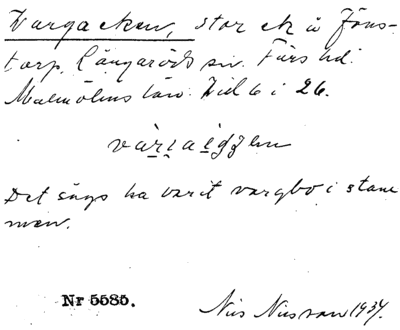 Vargaeken, stor ek å Jöns-
torp, Långaröds sn. Färs hd.
Malmöhus län. Till 6 i 26.
Det sägs ha varit vargbo i stam
men.
Nr 5585.
Nils Nilsson 1937.